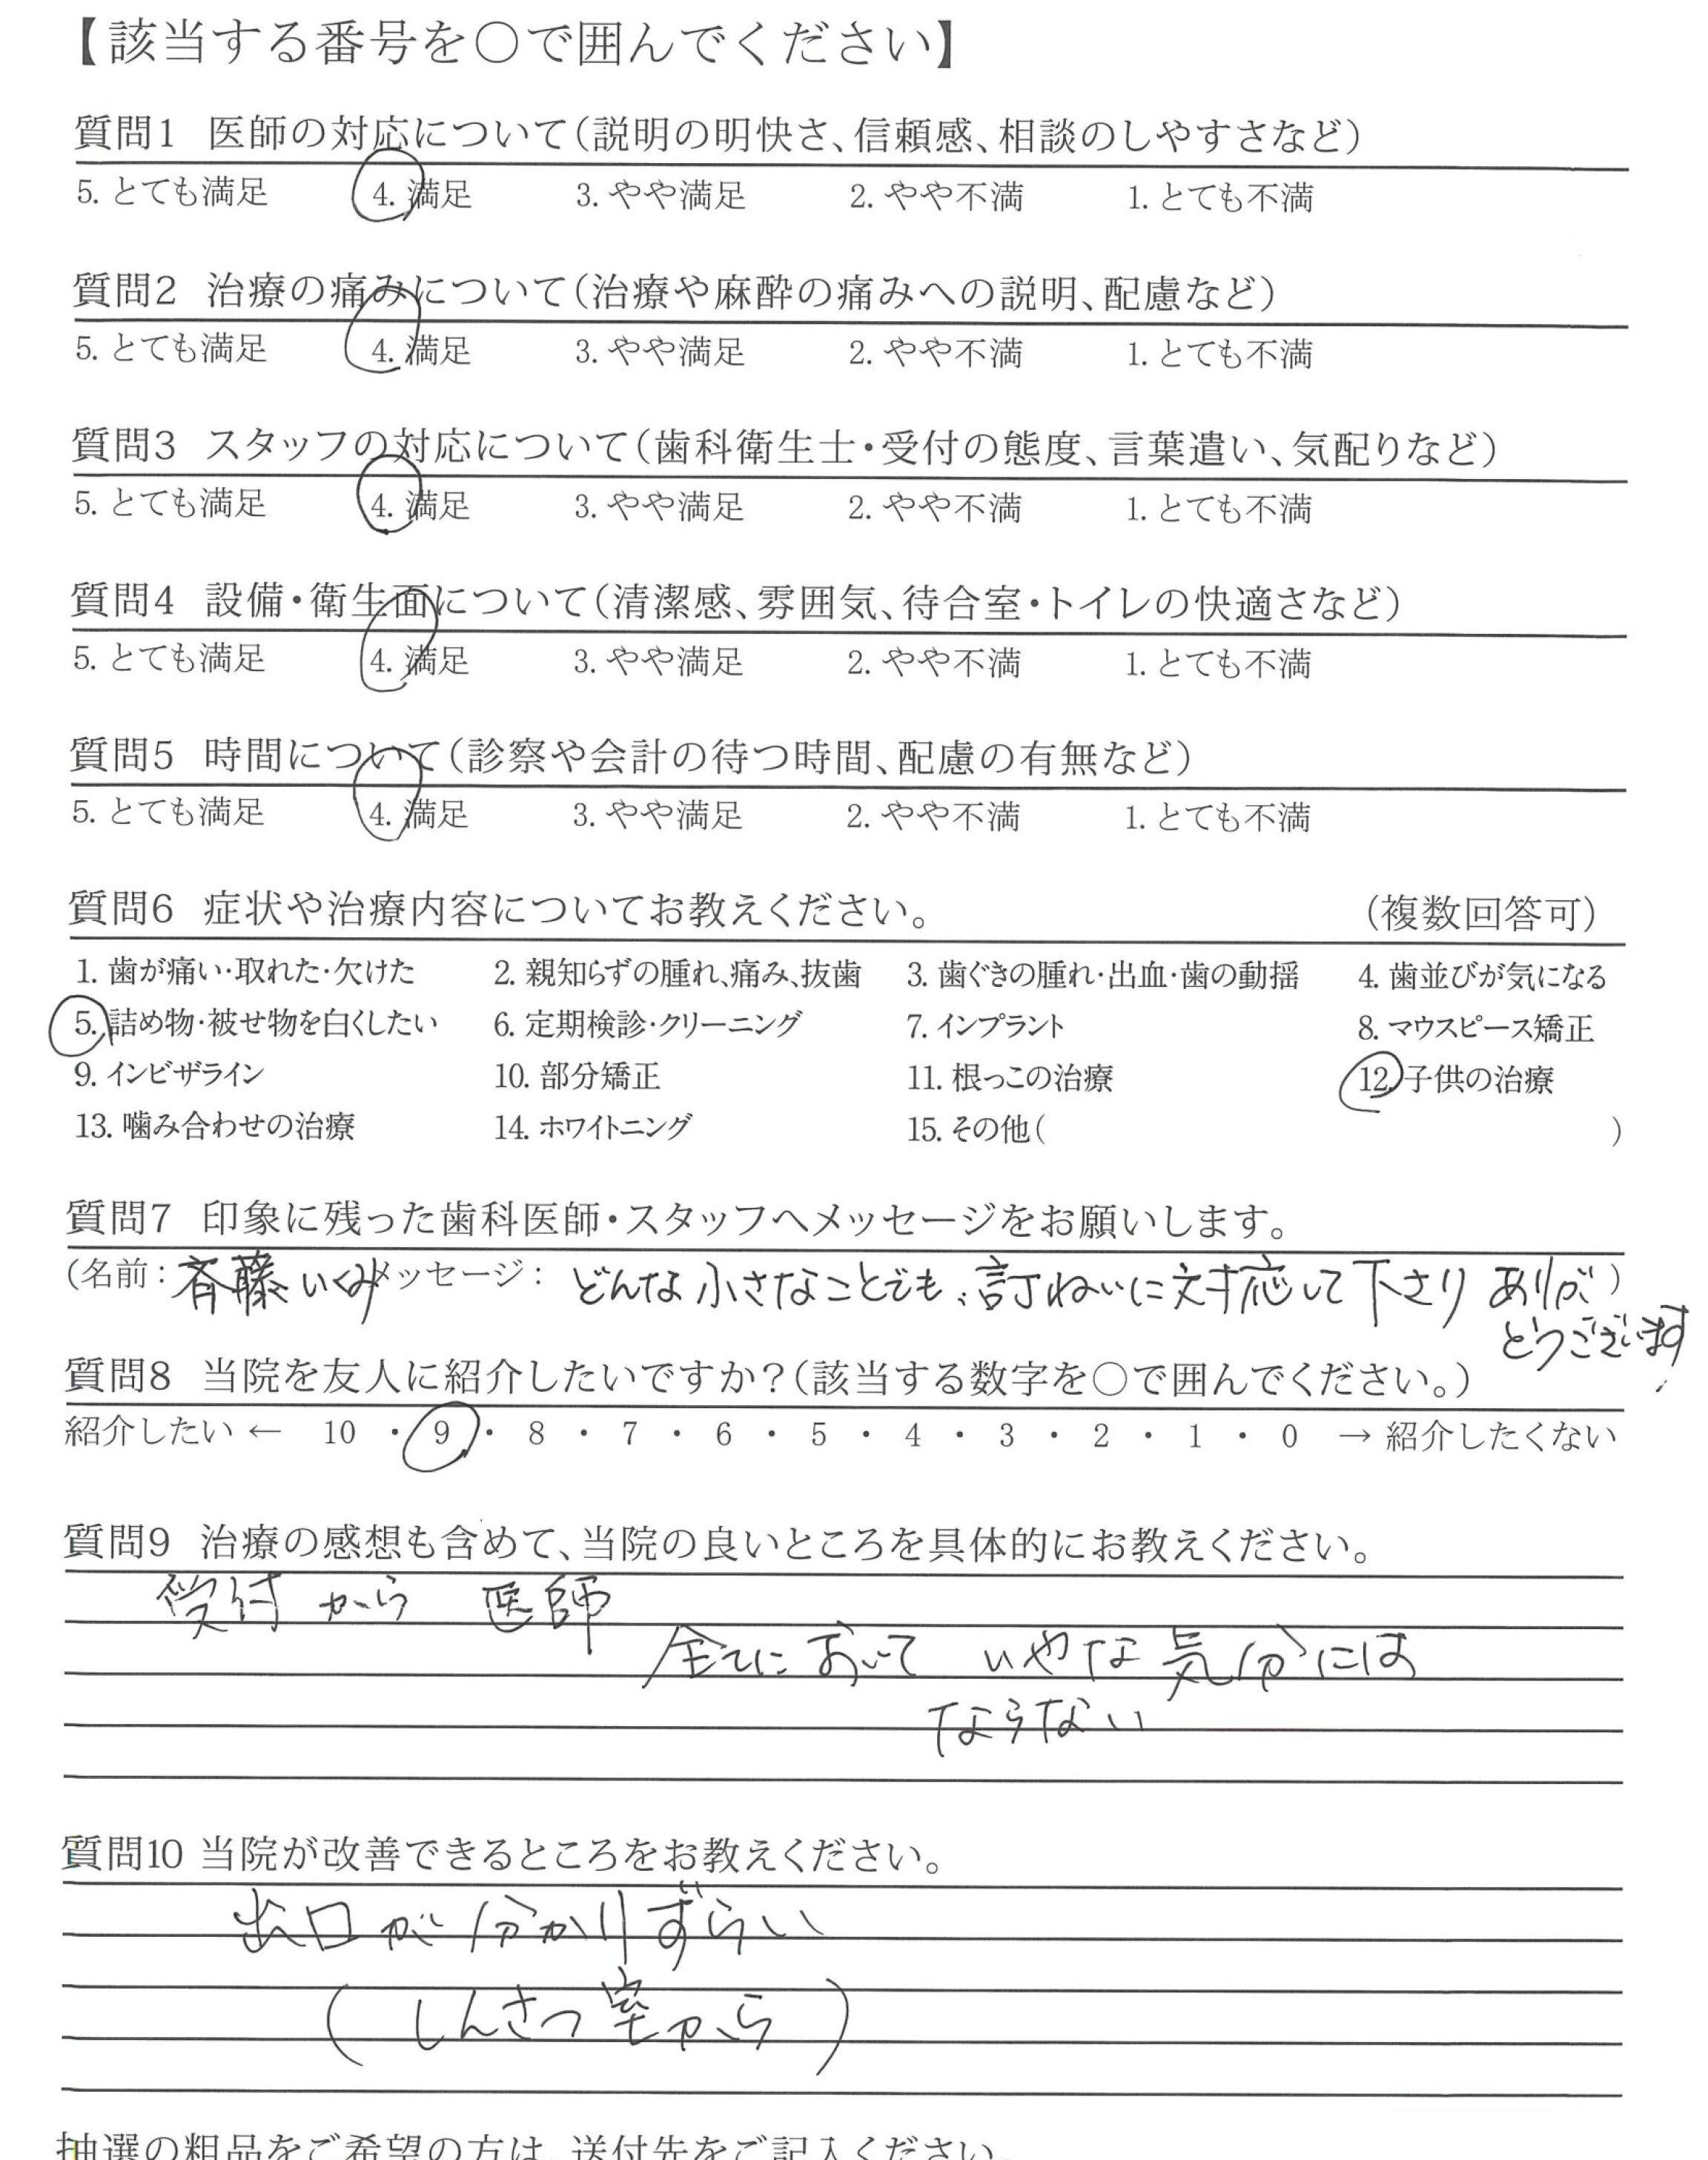 【該当する番号を〇で囲んでください】
質問1 医師の対応について(説明の明快さ、信頼感、相談のしやすさなど)
5. とても満足 4. 満足 3. やや満足 2. やや不満 1. とても不満
質問2 治療の痛みについて(治療や麻酔の痛みへの説明、配慮など)
5. とても満足 4. 満足 3. やや満足 2. やや不満 1. とても不満
質問3 スタッフの対応について(歯科衛生士・受付の態度、言葉遣い、気配りなど)
5. とても満足 4. 満足 3. やや満足 2. やや不満 1. とても不満
質問4 設備・衛生面について(清潔感、雰囲気、待合室・トイレの快適さなど)
5. とても満足 4. 満足 3. やや満足 2. やや不満 1. とても不満
質問5 時間について(診察や会計の待つ時間、配慮の有無など)
5. とても満足 4. 満足 3. やや満足 2. やや不満 1. とても不満
質問6 症状や治療内容についてお教えください。 (複数回答可)
1. 歯が痛い・取れた・欠けた 2. 親知らずの腫れ、痛み、抜歯 3. 歯ぐきの腫れ・出血・歯の動揺 4. 歯並びが気になる
5. 詰め物・被せ物を白くしたい 6. 定期検診・クリーニング 7. インプラント 8. マウスピース矯正
9. インビザライン 10. 部分矯正 11. 根っこの治療 12. 子供の治療
13. 噛み合わせの治療 14. ホワイトニング 15. その他( )
質問7 印象に残った歯科医師・スタッフへメッセージをお願いします。
(名前: 斉藤いくみ メッセージ: どんな小さなことでも、訂ねいに対応して下さり ありが)
とうございます
質問8 当院を友人に紹介したいですか?(該当する数字を〇で囲んでください。)
紹介したい ← 10 ・ 9 ・ 8 ・ 7 ・ 6 ・ 5 ・ 4 ・ 3 ・ 2 ・ 1 ・ 0 → 紹介したくない
質問9 治療の感想も含めて、当院の良いところを具体的にお教えください。
受付 から 医師
全てにおいて いやな気分には
ならない
質問10 当院が改善できるところをお教えください。
出口が分かりずらい
(しんさつ室から)
抽選の粗品をご希望の方は、送付先をご記入ください。